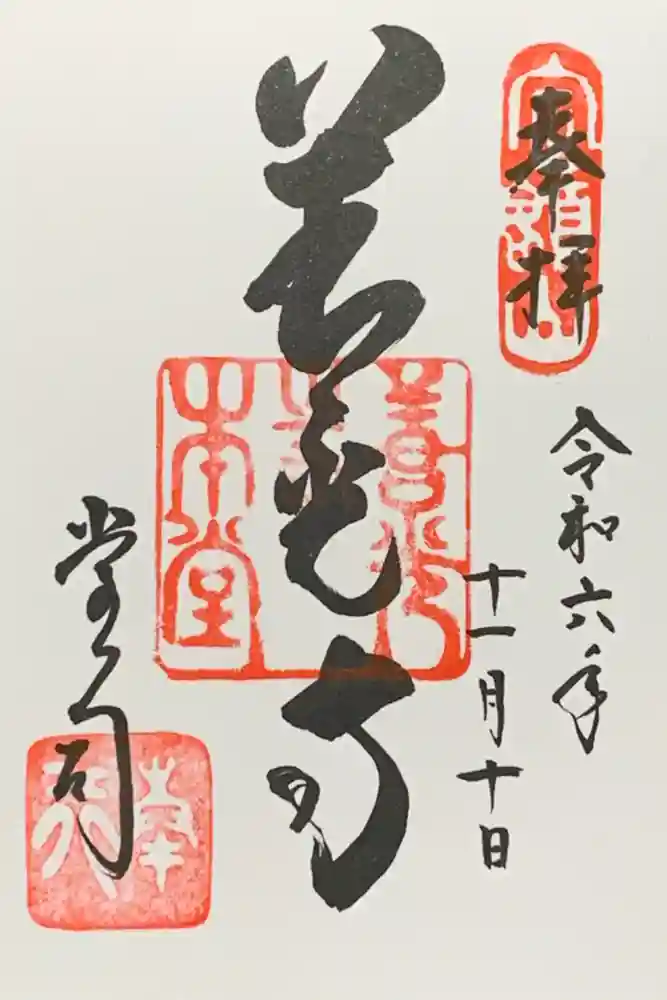 奉拝
令和六年
十一月十日
善光寺
善光
本堂
堂司